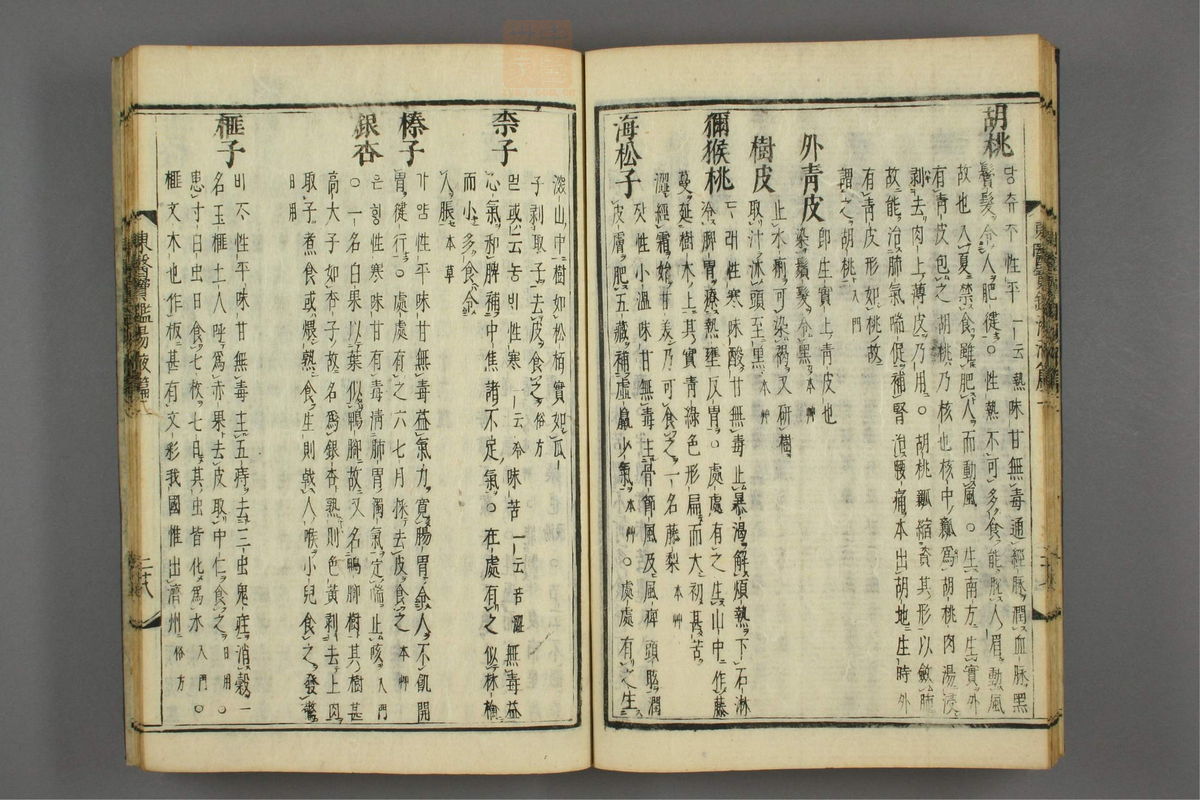 胡桃 당츄ᄌᆞ性平一云熱味甘無毒通經脉潤血脉黑
鬚髮令人肥健○性熱不可多食能脫人眉動風
故也人夏禁食雖肥人而動風○生南方生實外
有青皮包之胡桃乃核也核中瓤爲胡桃肉湯浸
剥去肉上薄皮乃用○胡桃瓤縮資其形以斂肺
故能治肺氣喘促補腎治腰痛本出胡地生時外
有青皮形如桃故
謂之胡桃入門
外青皮 卽生實上青皮也
染鬚髮令黑本艸
樹皮 止水痢可染褐又研樹
取汁沐頭至黑本艸
獼猴桃 ᄃᆞ래性寒味酸甘無毒止暴渴解煩熱下石淋
冷脾胃療熱壅反胃○處處有之生山中作藤
蔓延樹木上其實青綠色形扁而大初甚苦
澁經霜始甘美乃可食之一名藤梨本艸
海松子 잣性小溫味甘無毒主骨節風及風痺頭眩潤
皮膚肥五藏補虛羸少氣本艸○處處有之生
深山中樹如松栢實如瓜
子剥取子去皮食之俗方
柰子 먼或云농비性寒一云冷味苦一云苦澀無毒益
心氣和脾補中焦諸不足氣○在處有之似林檎
而小多食令
人脹本草
榛子 가얌性平味甘無毒益氣力寬腸胃令人不飢開
胃健行○處處有之六七月採去皮食之本艸
銀杏 은ᄒᆡᆼ性寒味甘有毒淸肺胃濁氣定喘止咳入門
○一名白果以葉似鴨脚故又名鴨脚樹其樹甚
高大子如杏子故名爲銀杏熟則色黃剥去上肉
取子煮食或煨熟食生則戟人喉小兒食之發驚
日用
榧子 비ᄌᆞ性平味甘無毒主五痔去三虫鬼疰消穀○一
名玉榧土人呼爲赤果去皮取中仁食之日用○
患寸白虫日食七枚七日其虫皆化爲水入門○
榧文木也作板甚有文彩我國惟出濟州俗方
東醫寶鑑湯液篇二
二十八